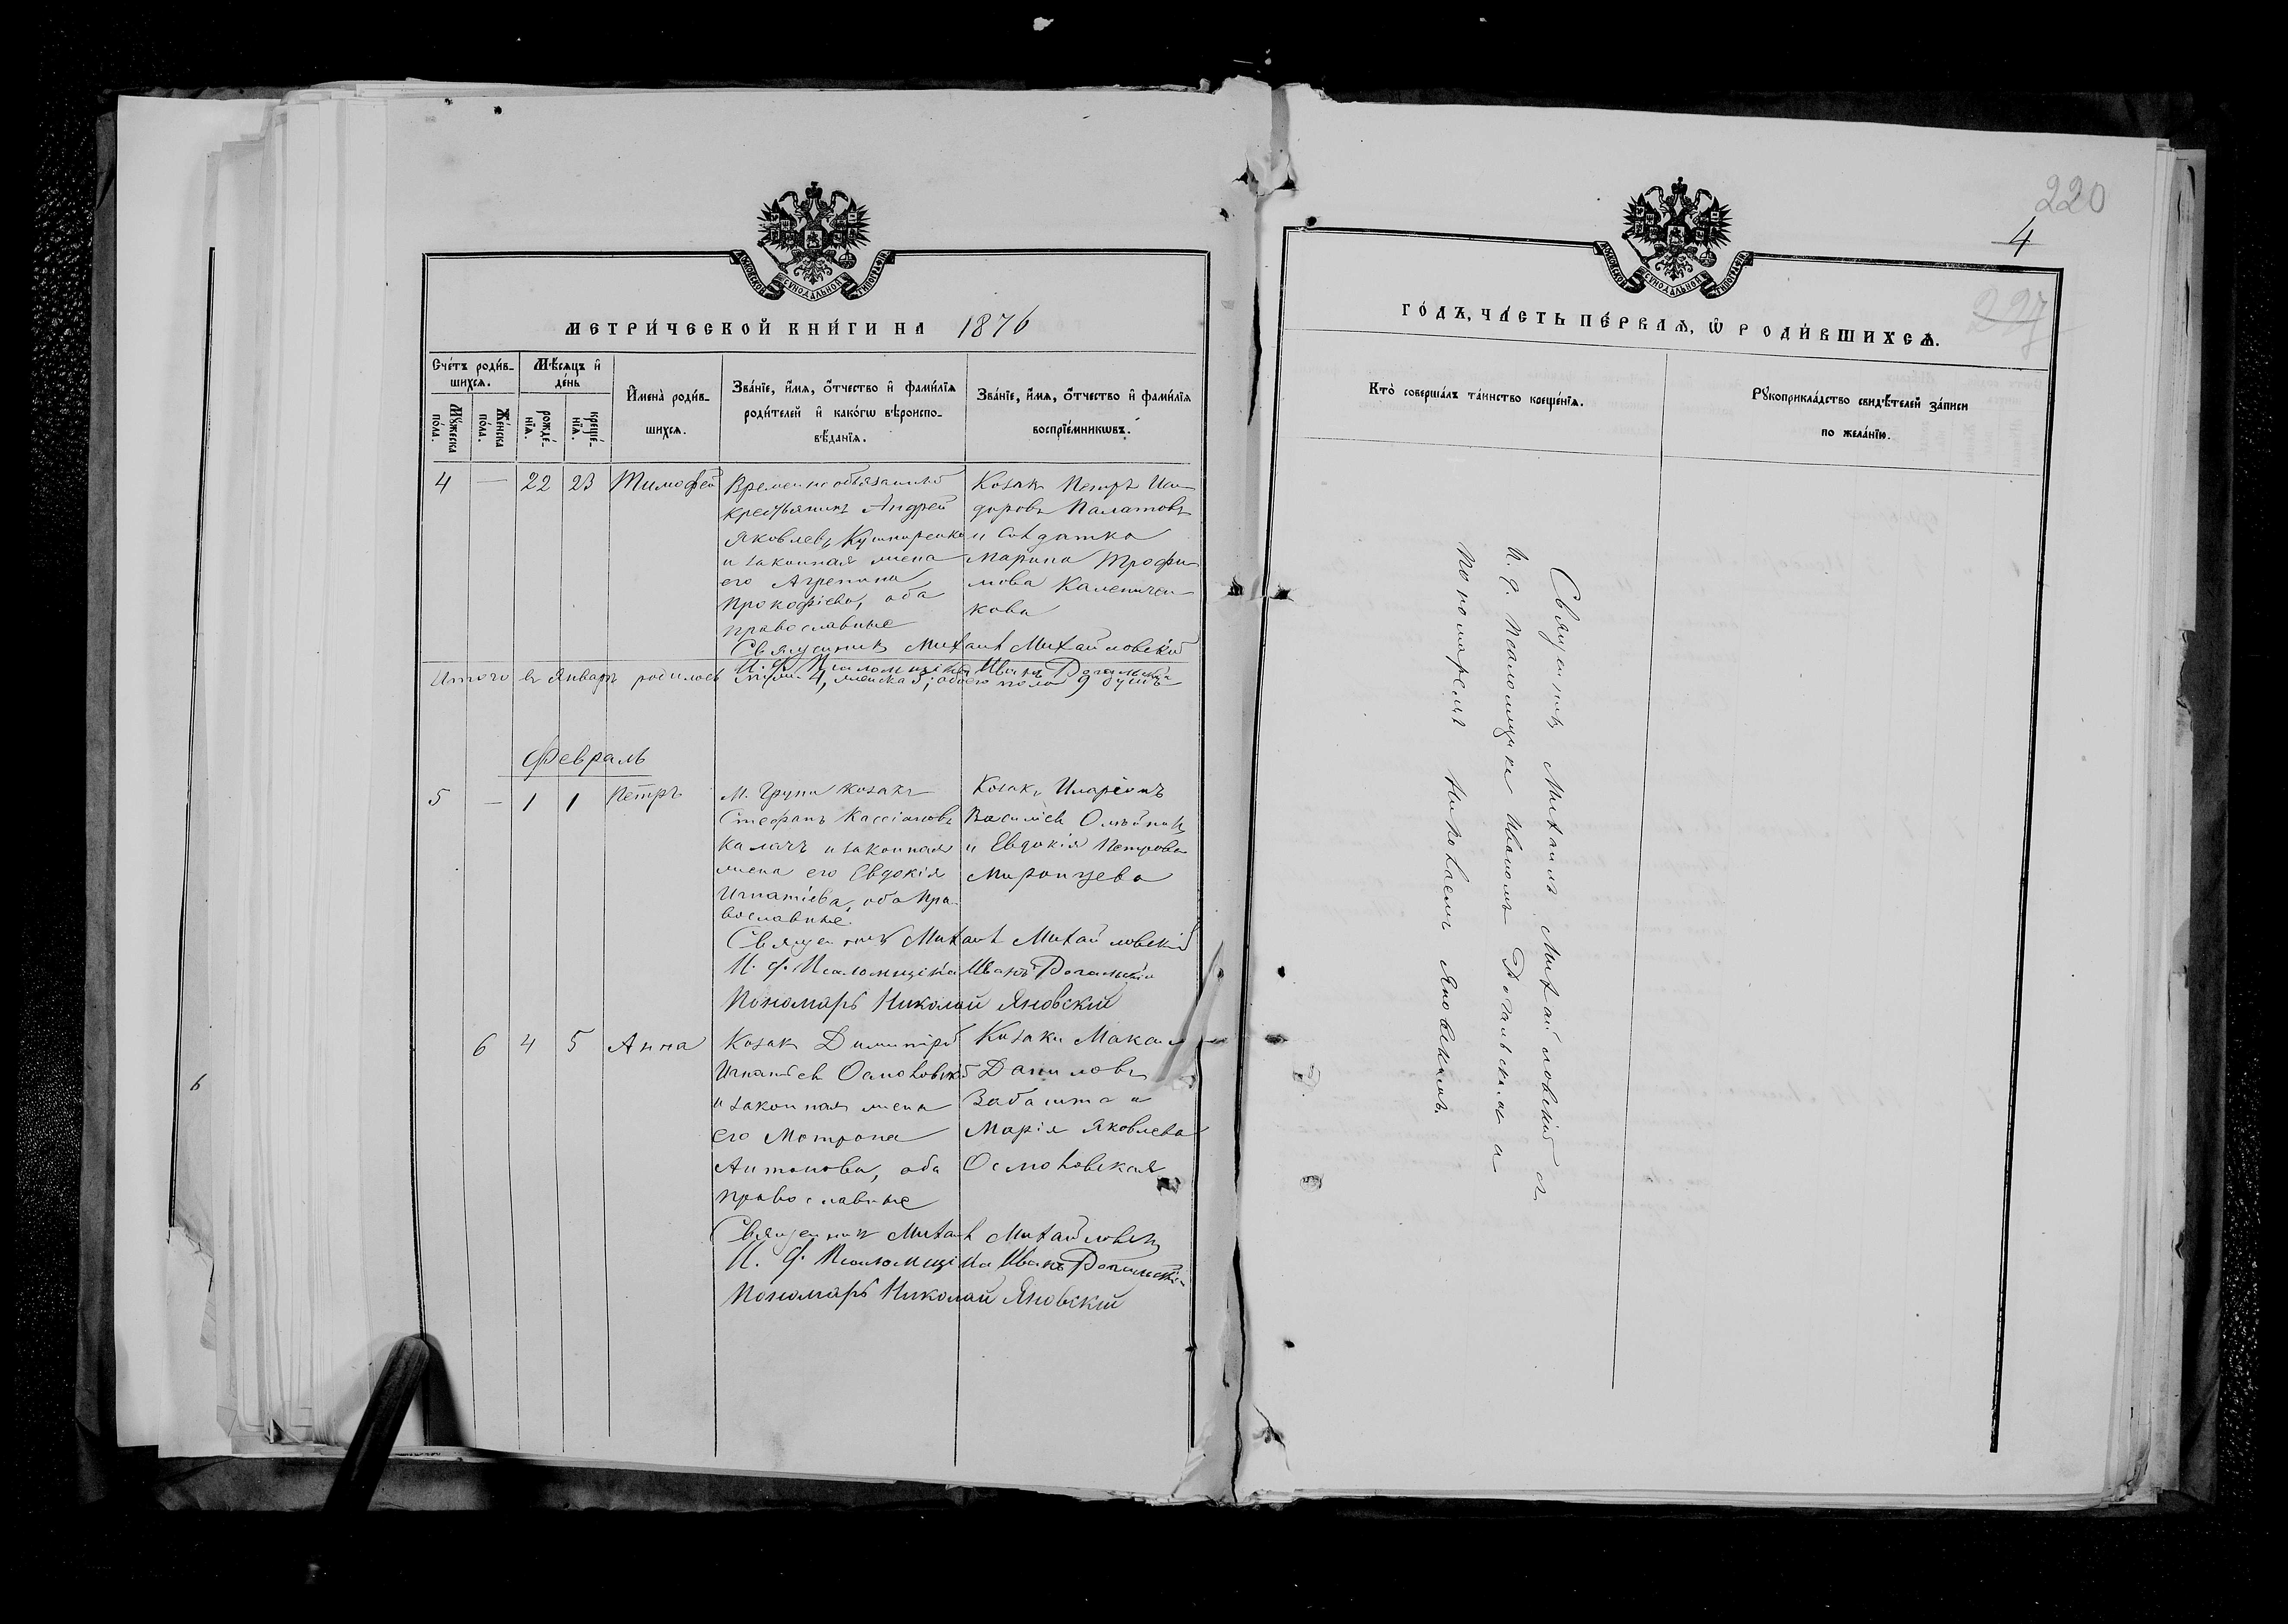 МЕТРИ́ЧЕСКОЙ КНИ́ГИ НА 1876
Сче́тъ роди́в-
шихся.
Мѣ́сяцъ и҆
де́нь
Мꙋ́жеска
по́ла.
Же́нска
по́ла.
рожде́-
нїѧ.
креще́-
нїѧ.
И҆мена̀ роди́в-
шихсѧ.
Зва́нїе, и҆́мѧ, ѻ҆́тчество и҆ фами́лїѧ
роди́телей и҆ како́гѡ вѣ̀роиспо-
вѣ́данїѧ.
Зва́нїе, и҆́мѧ, ѻ҆́тчество и҆ фами́лїѧ
воспрїе́мникѡвъ.
4 — 22 23 Тимофей
Временнообязанный
крестьянинъ Андрей
Яковлевъ Кушниренко
и законная жена
его Агрепина
Прокофіева, оба
православные
Козакъ Петръ Иси-
доровъ Палатовъ
и Солдатка
Марина Трофи-
мова Каленичен-
кова
Священникъ Михаил Михайловскій
И. ф. Псаломщика Иванъ Рогальскій
Итого въ Январѣ родилось муж. 4, женска 5, обоего пола 9 душъ
Февраль
5 — 1 1 Петръ
М. Групи козакъ
Стефанъ Кассіановъ
Калачъ и законная
жена его Евдокія
Игнатіева, оба пра-
вославные.
Козакъ Иларіонъ
Василіевъ Олѣйникъ
и Евдокія Петрова
Миронцева
Священникъ Михаил Михайловскій
И. ф. Псаломщика Иванъ Рогальскій
Пономарь Николай Яновскій
6 4 5 Анна
Козакъ Димитрій
Игнатіевъ Осмоловскій
и законная жена
его Мотрона
Антонова, оба
православные
Козаки Максимъ
Даниловъ
Забашта и
Марія Яковлева
Осмоловская
Священникъ Михаил Михайловскій
И. ф. Псаломщика Иванъ Рогальскій
Пономарь Николай Яновскій
6
220
4
227
ГО́ДЪ, ЧА́СТЬ ПЕ́РВАѦ, Ѽ РОДИ́ВШИХСѦ.
Кто̀ соверша́лъ та́инство креще́нїѧ.
Рꙋкоприкла́дство свидѣ́телей за́писи
по жела́нїю.
Священникъ Михаилъ Михайловскій съ
И. ф. Псаломщика Иваномъ Рогальскимъ и
Пономаремъ Николаемъ Яновскимъ.
МОСКОВСКОЙ СѴНОДАЛЬНОЙ ТИПОГРАФІИ
МОСКОВСКОЙ СѴНОДАЛЬНОЙ ТИПОГРАФІИ